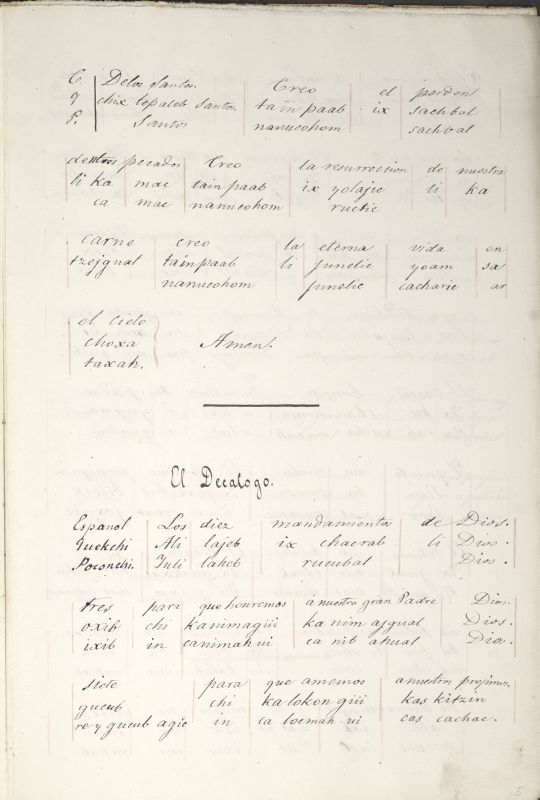 C. Delos Santos. Creo el perdon
Q chix tepaleb santos. tain paab ix sachbal
P. Santos nanucohom sachbal
de ntros pecados Creo la resurreccion de nuestra
li ka mac tain paab ix yolajic li ka
ca mac nanucohom ructic
carne creo la eterna vida en
tzejgual tainpaab li junelic yoam sa
nanucohom junelic cacharic ar
el cielo
choxa Amen.
taxah.
El Decalogo.
Español Los diez mandamientos de Dios.
Quekchi Ali lajeb ix chacrab li Dios.
Poconchi. Juli laheb rucubal Dios.
tres para que honremos á nuestro gran Padre Dios.
oxib chi kanimagüi ka nim ajgual Dios.
ixib in canimah ui ca nib ahual Dios.
siete para que amemos a nuestros projimos.
gucub chi ka lokon güi kas kitzin
re y gucub agic in ca locmah ui cas cachac.
5